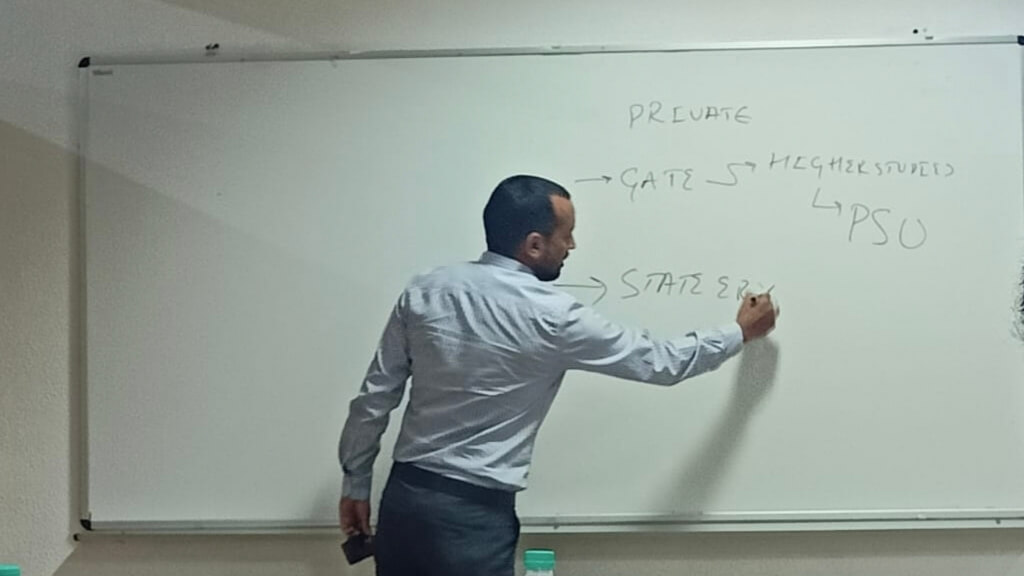 PRIVATE
→ GATE → HIGHER STUDIES
↳ PSU
→ STATE